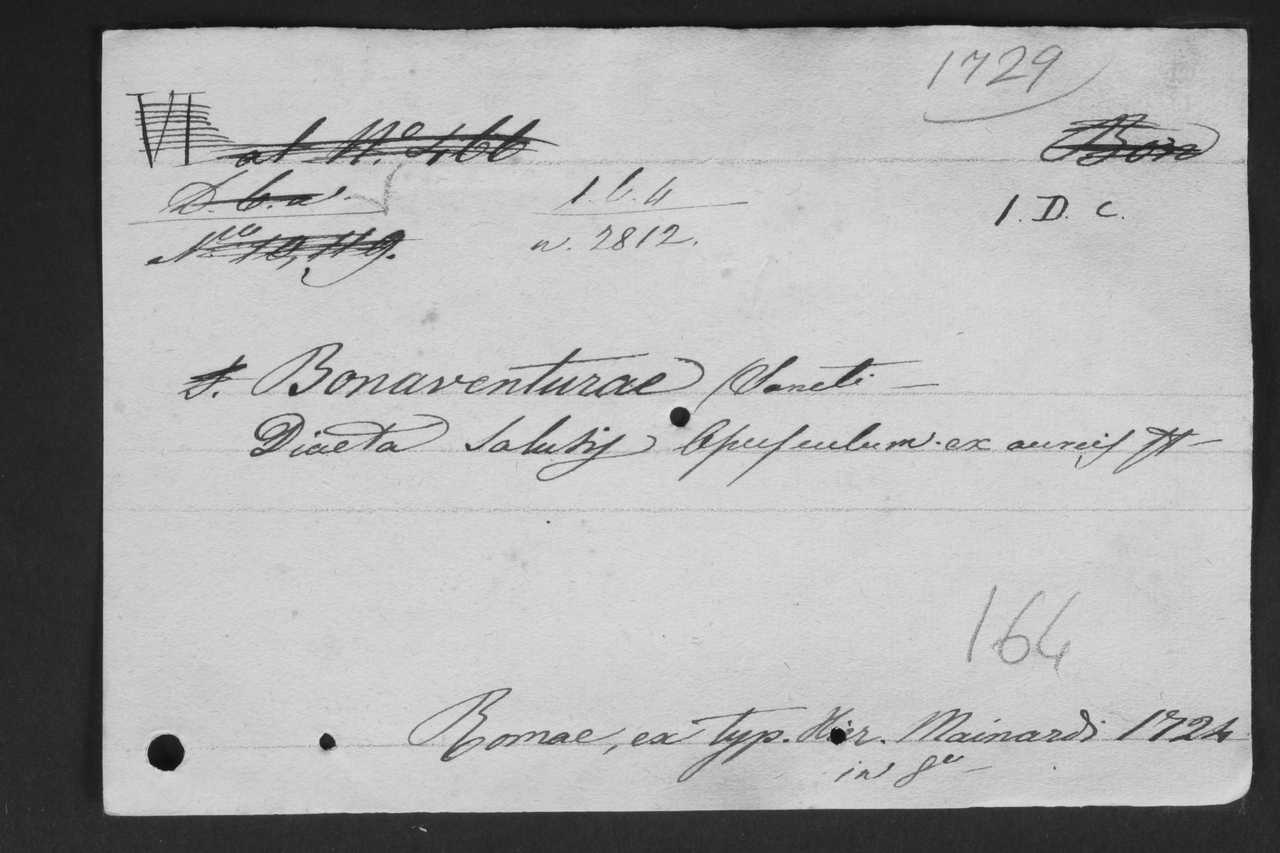 1729
VI al Nº 466
Bon
D. b. a.
1. b. 4
1. D. c.
Nro 10,119.
n. 2812.
S. Bonaventurae Sancti —
Diaeta Salutis Opusculum ex aureis
164
Romae, ex typ. Hier. Mainardi 1724
in 8º —